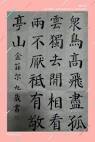 衆鳥高飛盡孤
雲獨去閒相看
兩不厭祗有敬
亭山 金菲尔九歲書